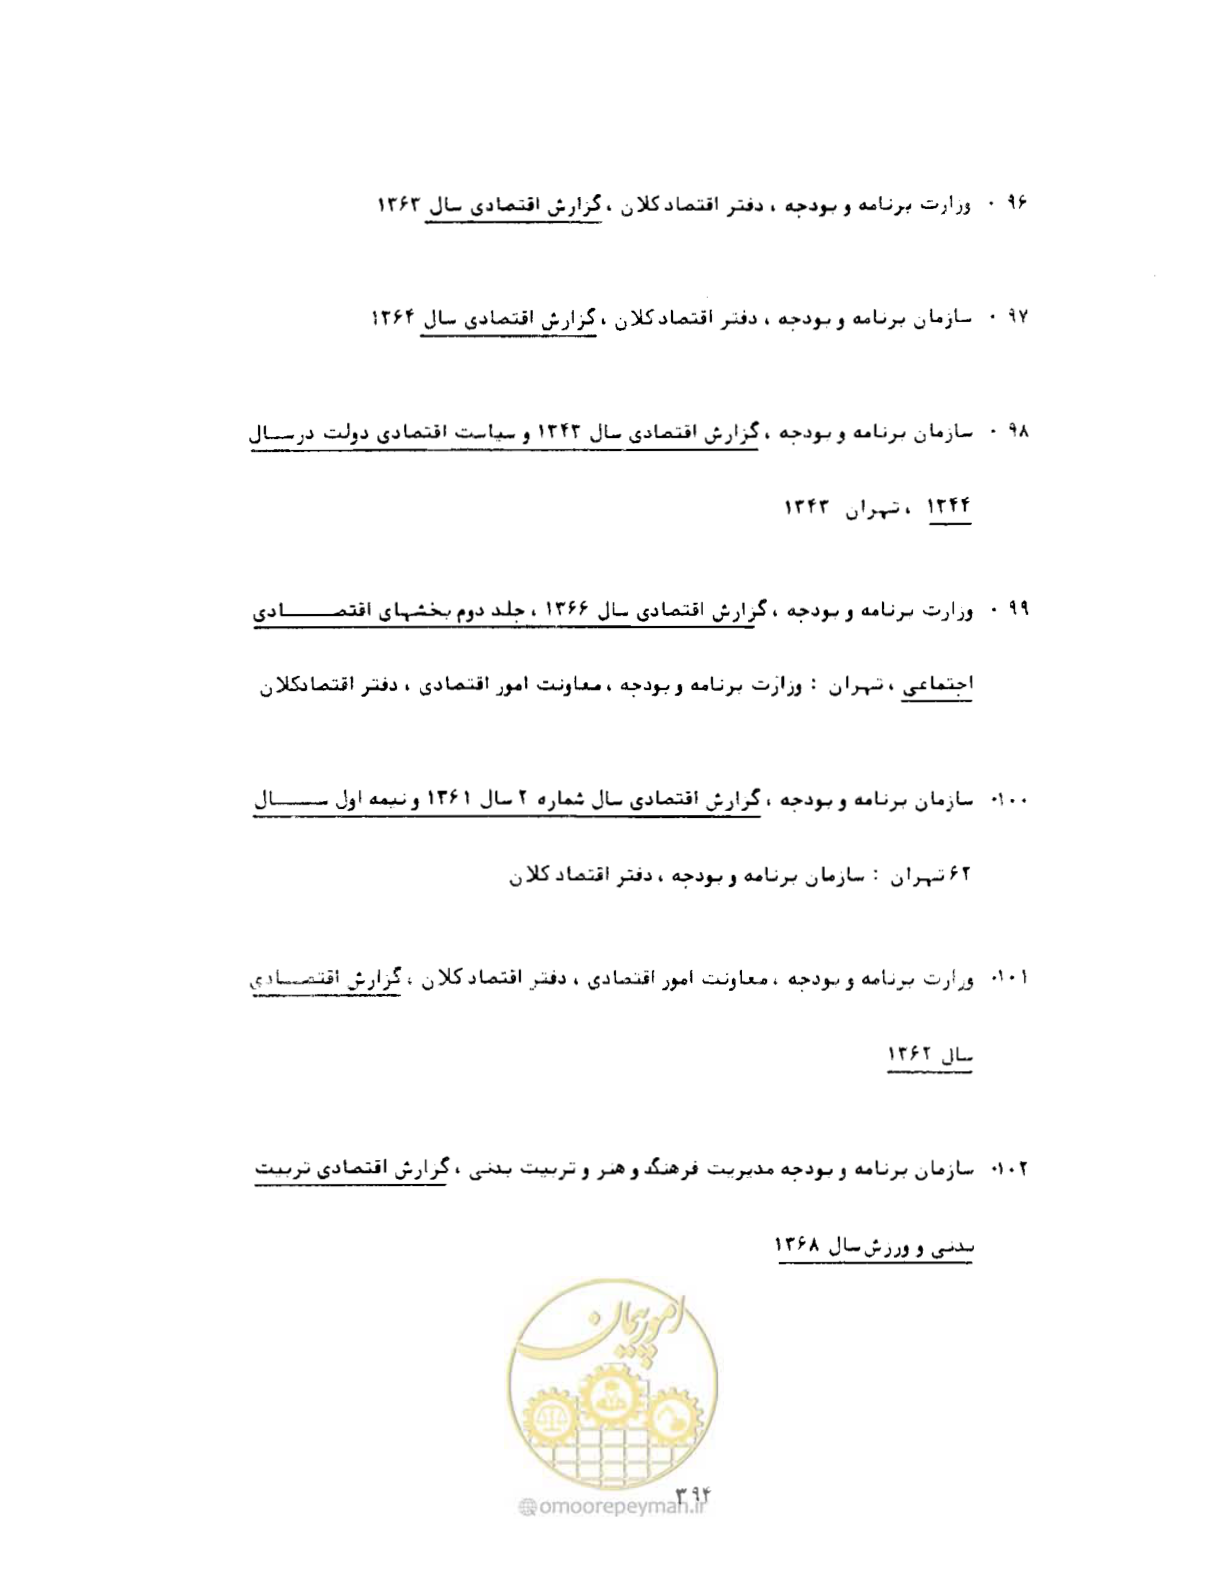 ۹۶ ۰ وزارت برنامه و بودجه ، دفتر اقتصاد کلان ، گزارش اقتصادی سال ۱۳۶۳
۹۷ ۰ سازمان برنامه و بودجه ، دفتر اقتصاد کلان ، گزارش اقتصادی سال ۱۳۶۴
۹۸ ۰ سازمان برنامه و بودجه ، گزارش اقتصادی سال ۱۳۴۳ و سیاست اقتصادی دولت درسـال
۱۳۴۴ ، تهران ۱۳۴۳
۹۹ ۰ وزارت برنامه و بودجه ، گزارش اقتصادی سال ۱۳۶۶ ، جلد دوم بخشهای اقتصـــادی
اجتماعی ، تهران : وزارت برنامه و بودجه ، معاونت امور اقتصادی ، دفتر اقتصادکلان
۱۰۰۰ سازمان برنامه و بودجه ، گزارش اقتصادی سال شماره ۲ سال ۱۳۶۱ و نیمه اول ســـال
۶۲ تهران : سازمان برنامه و بودجه ، دفتر اقتصاد کلان
۱۰۱۰ وزارت برنامه و بودجه ، معاونت امور اقتصادی ، دفتر اقتصاد کلان ، گزارش اقتصـادی
سال ۱۳۶۲
۱۰۲۰ سازمان برنامه و بودجه مدیریت فرهنگ و هنر و تربیت بدنی ، گزارش اقتصادی تربیت
بدنی و ورزش سال ۱۳۶۸
امور پیمان
۳۹۴
omoorepeyman.ir